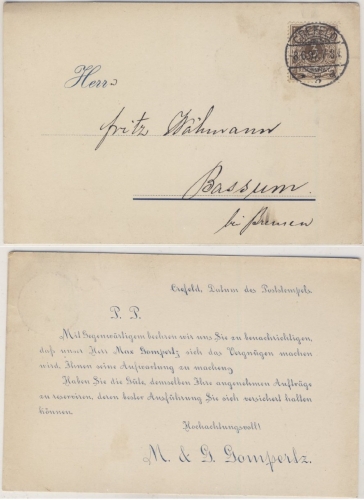 CREFELD
Herrn
Fritz Wähmann
Bassum.
bei Bremen
Crefeld, Datum des Poststempels.
P. P.
Mit Gegenwärtigem beehren wir uns Sie zu benachrichtigen,
daß unser Herr Max Gompertz sich das Vergnügen machen
wird, Ihnen seine Aufwartung zu machen.
Haben Sie die Güte, demselben Ihre angenehmen Aufträge
zu reserviren, deren bester Ausführung Sie sich versichert halten
können.
Hochachtungsvoll!
M. & D. Gompertz.